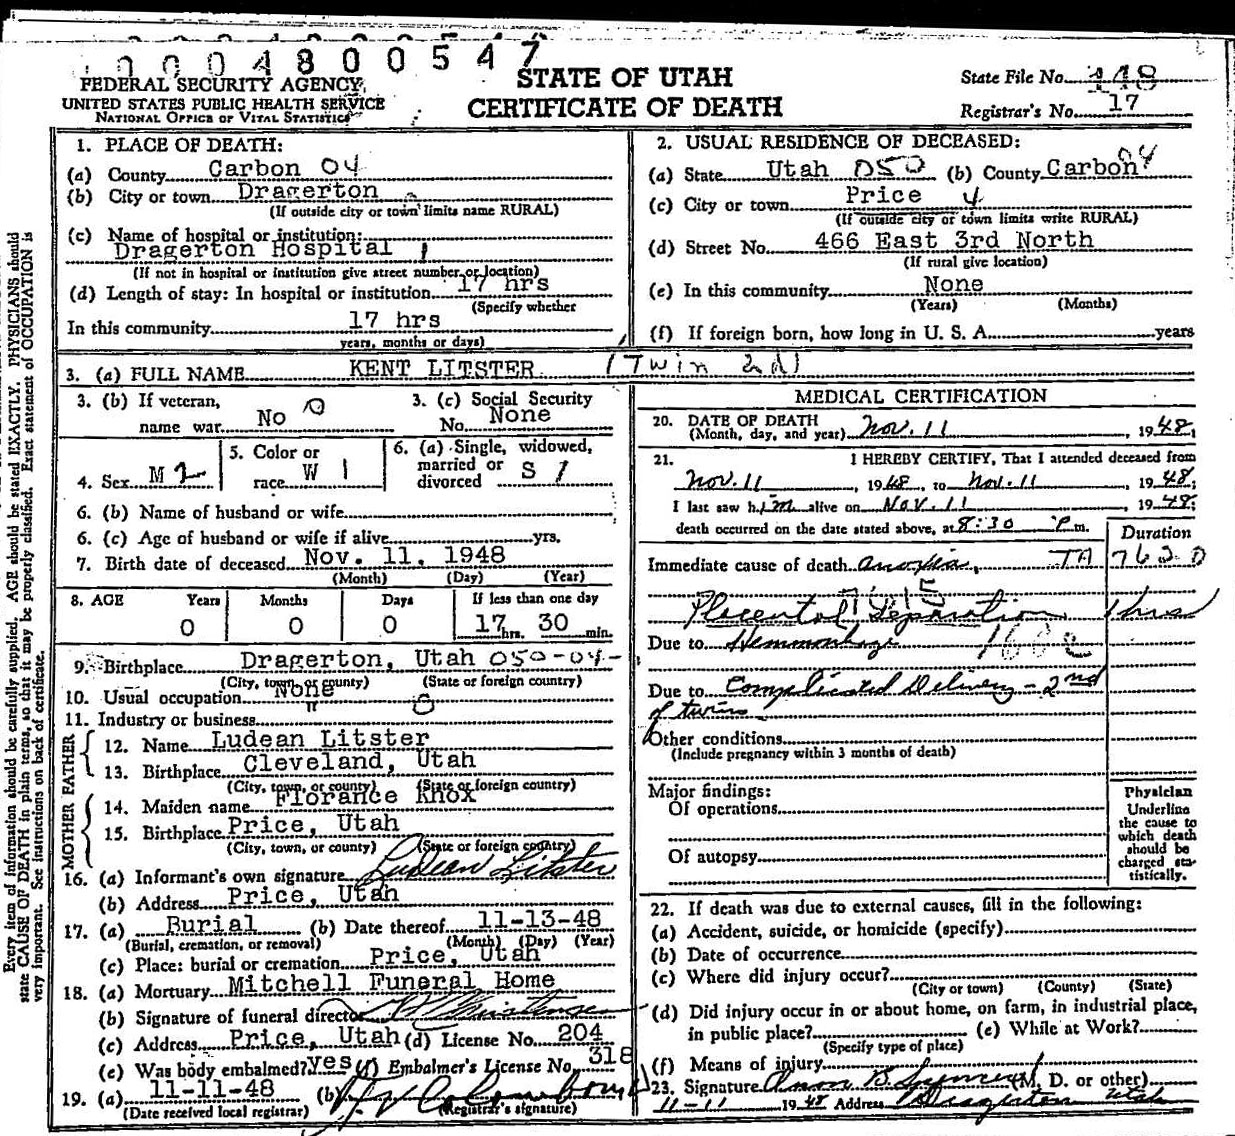 0004800547
FEDERAL SECURITY AGENCY
UNITED STATES PUBLIC HEALTH SERVICE
NATIONAL OFFICE OF VITAL STATISTICS
STATE OF UTAH
CERTIFICATE OF DEATH
State File No. 148
Registrar's No. 17
1. PLACE OF DEATH:
(a) County Carbon 04
(b) City or town Dragerton
(If outside city or town limits name RURAL)
(c) Name of hospital or institution:
Dragerton Hospital 1
(If not in hospital or institution give street number or location)
(d) Length of stay: In hospital or institution 17 hrs
(Specify whether
In this community 17 hrs
years, months or days)
2. USUAL RESIDENCE OF DECEASED:
(a) State Utah 050 (b) County Carbon 04
(c) City or town Price 4
(If outside city or town limits write RURAL)
(d) Street No. 466 East 3rd North
(If rural give location)
(e) In this community None
(Years) (Months)
(f) If foreign born, how long in U. S. A. years
3. (a) FULL NAME KENT LITSTER (Twin 2d)
3. (b) If veteran, name war No 0
3. (c) Social Security No. None
4. Sex M 2
5. Color or race W 1
6. (a) Single, widowed, married or divorced S 1
6. (b) Name of husband or wife
6. (c) Age of husband or wife if alive yrs.
7. Birth date of deceased Nov. 11, 1948
(Month) (Day) (Year)
8. AGE Years Months Days If less than one day
0 0 0 17 hrs. 30 min.
9. Birthplace Dragerton, Utah 050-04-
(City, town, or county) (State or foreign country)
10. Usual occupation None
11. Industry or business "
FATHER
12. Name Ludean Litster
13. Birthplace Cleveland, Utah
(City, town, or county) (State or foreign country)
MOTHER
14. Maiden name Florance Knox
15. Birthplace Price, Utah
(City, town, or county) (State or foreign country)
16. (a) Informant's own signature Ludean Litster
(b) Address Price, Utah
17. (a) Burial (b) Date thereof 11-13-48
(Burial, cremation, or removal) (Month) (Day) (Year)
(c) Place: burial or cremation Price, Utah
18. (a) Mortuary Mitchell Funeral Home
(b) Signature of funeral director
(c) Address Price, Utah (d) License No. 204
(e) Was body embalmed? yes (f) Embalmer's License No. 318
19. (a) 11-11-48 (b)
(Date received local registrar) (Registrar's signature)
MEDICAL CERTIFICATION
20. DATE OF DEATH
(Month, day, and year) Nov. 11, 1948;
21. I HEREBY CERTIFY, That I attended deceased from
Nov. 11, 1948, to Nov. 11, 1948;
I last saw him alive on Nov. 11, 1948;
death occurred on the date stated above, at 8:30 P m.
Duration
Immediate cause of death anoxia, TA 7620
7615
Placental Separation 1 hrs
Due to Hemmorhage
Due to Complicated Delivery - 2nd
of twins
Other conditions
(Include pregnancy within 3 months of death)
Major findings:
Of operations
Of autopsy
Physician
Underline
the cause to
which death
should be
charged sta-
tistically.
22. If death was due to external causes, fill in the following:
(a) Accident, suicide, or homicide (specify)
(b) Date of occurrence
(c) Where did injury occur?
(City or town) (County) (State)
(d) Did injury occur in or about home, on farm, in industrial place,
in public place? (e) While at Work?
(Specify type of place)
(f) Means of injury
23. Signature (M. D. or other)
11-11 1948 Address Dragerton Utah
Every item of information should be carefully supplied. AGE should be stated EXACTLY. PHYSICIANS should
state CAUSE OF DEATH in plain terms, so that it may be properly classified. Exact statement of OCCUPATION is
very important. See instructions on back of certificate.